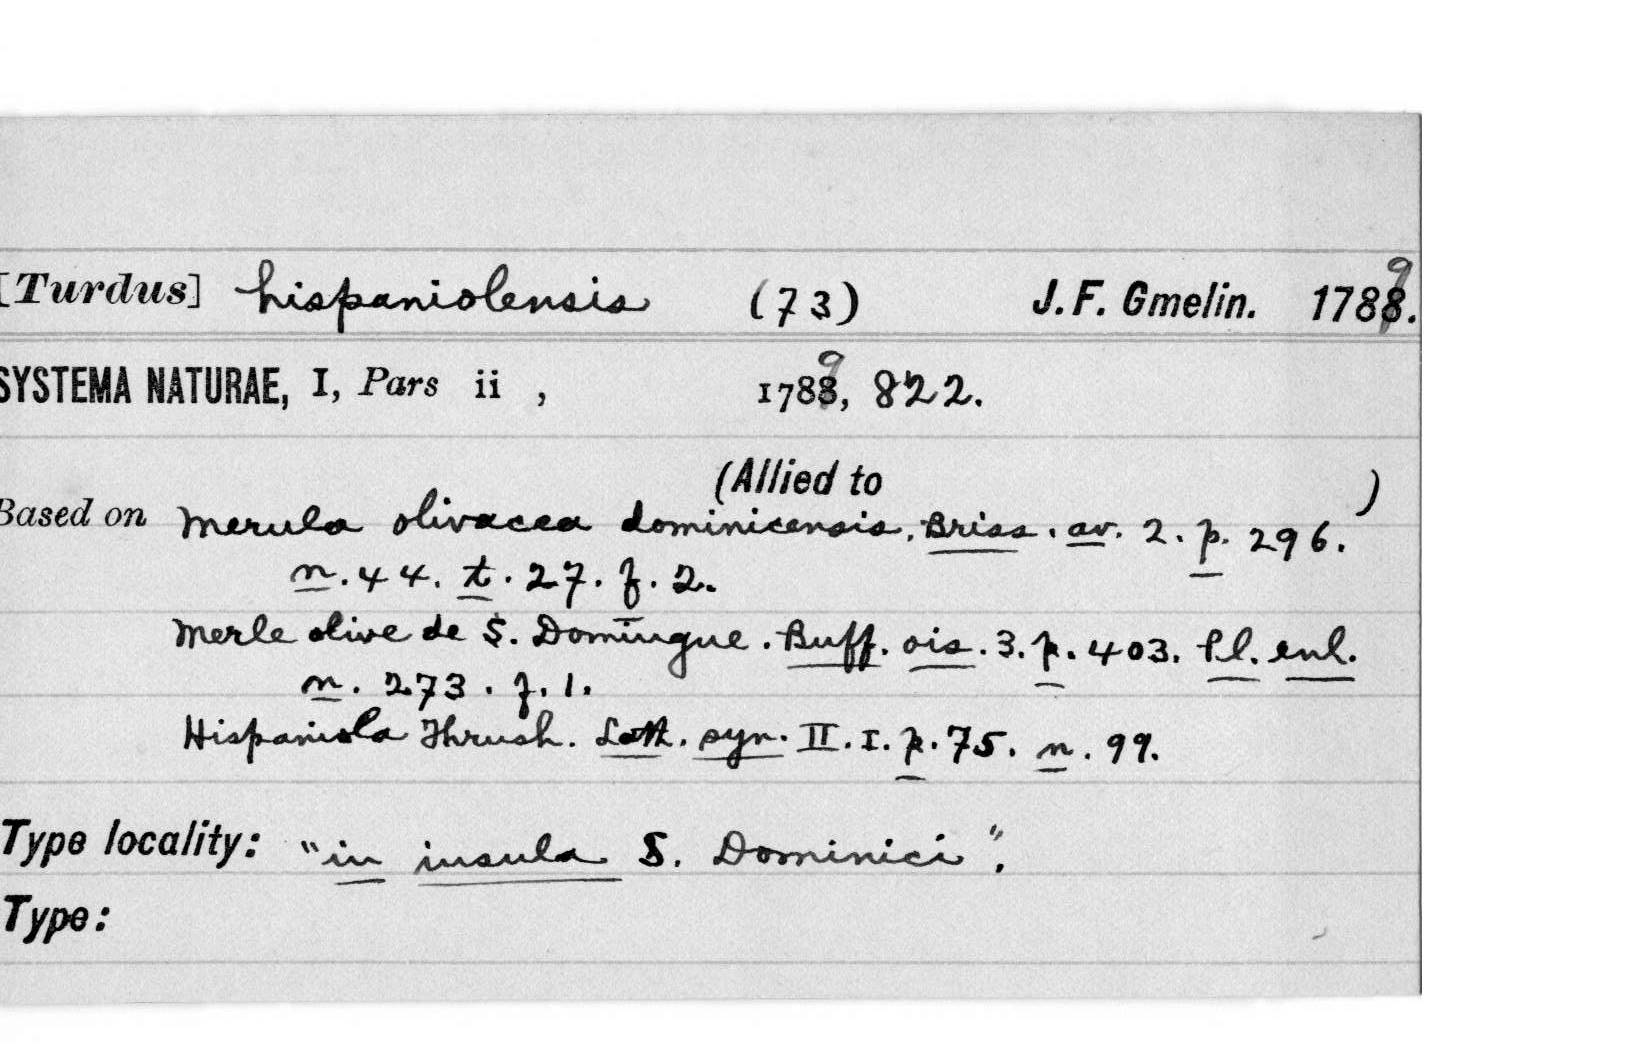 [Turdus] hispaniolensis (73) J. F. Gmelin. 1789.
SYSTEMA NATURAE, I, Pars ii , 1789, 822.
(Allied to )
Based on Merula olivacea dominicensis. Briss. av. 2. p. 296.
n. 44. t. 27. f. 2.
Merle olive de S. Domingue. Buff. ois. 3. p. 403. Pl. enl.
n. 273. f. 1.
Hispaniola Thrush. Lath. syn. II. I. p. 75. n. 99.
Type locality: "in insula S. Dominici".
Type: